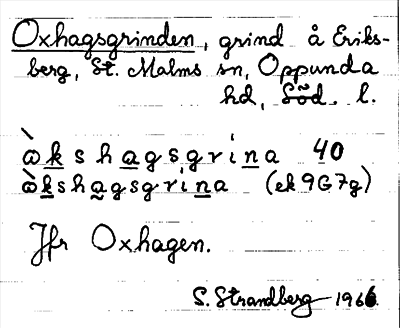 Oxhagsgrinden, grind å Eriks-
berg, St. Malms sn, Oppunda
hd, Söd. l.
ὼk̲sha̲gsgrin̲a 40
ὼk̲sha̲gsgrin̲a (ek 9G7g)
Jfr Oxhagen.
S. Strandberg 1966